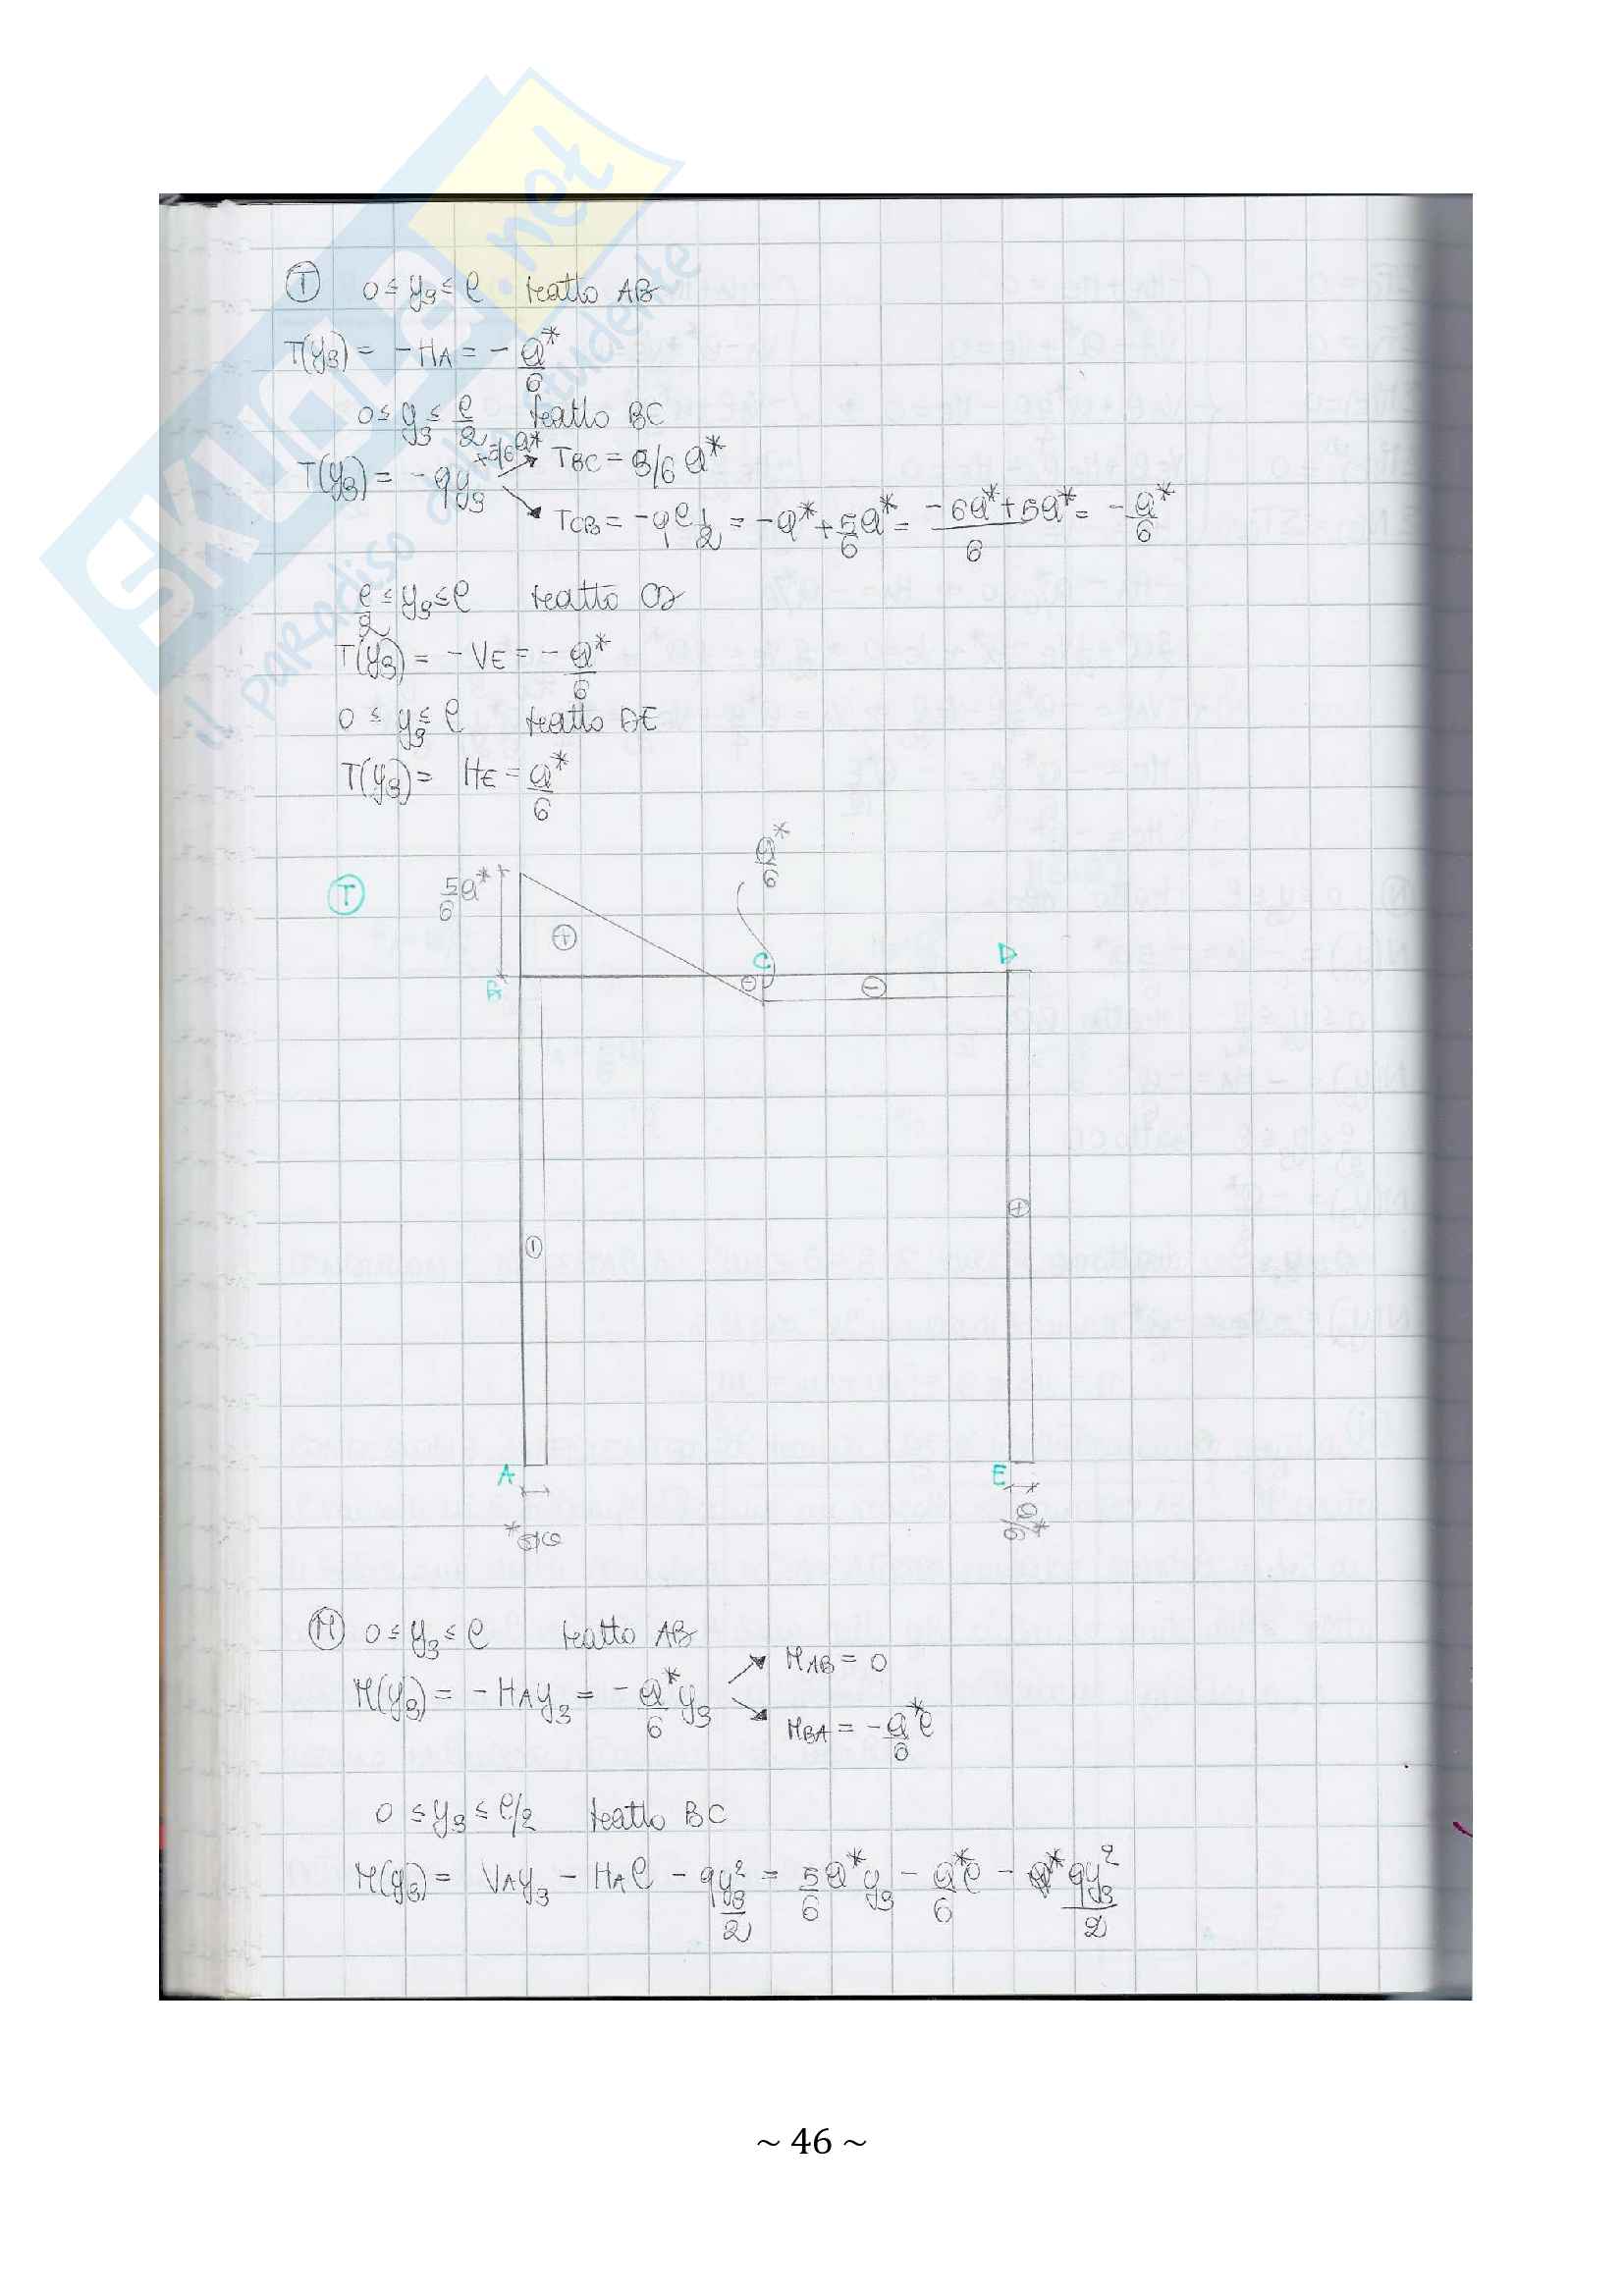 SKUOLA.net
il paradiso dello studente
Ⓣ 0 ≤ y₃ ≤ ℓ tratto AB
T(y₃) = - HA = - Q*/6
0 ≤ y₃ ≤ ℓ/2 tratto BC
T(y₃) = - qy₃ +5/6Q* ↗ TBC = 5/6 Q*
↘ TCB = -qℓ1/2 = -Q* + 5/6 Q* = (-6Q* + 5Q*)/6 = -Q*/6
ℓ/2 ≤ y₃ ≤ ℓ tratto CD
T(y₃) = - VE = - Q*/6
0 ≤ y₃ ≤ ℓ tratto DE
T(y₃) = HE = Q*/6
Q*/6
Ⓣ 5/6 Q*
⊕
B C D
⊖ ⊖
⊕
⊖
A E
Q*/6 Q*/6
Ⓜ 0 ≤ y₃ ≤ ℓ tratto AB
M(y₃) = - HAy₃ = - Q*/6 y₃ ↗ MAB = 0
↘ MBA = - Q*ℓ/6
0 ≤ y₃ ≤ ℓ/2 tratto BC
M(y₃) = VAy₃ - HAℓ - qy₃²/2 = 5/6 Q*y₃ - Q*ℓ/6 - qy₃²/2
~ 46 ~